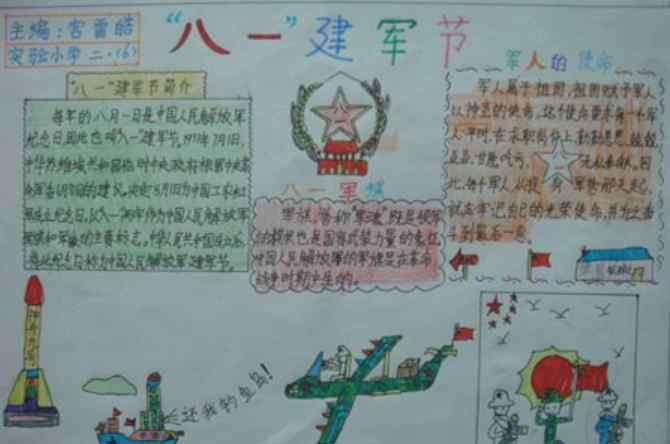 主编:宫雷皓
实验小学二·(6)
“八一”建军节
“八一”建军节简介
每年的八月一日是中国人民解放军
纪念日,因此也叫“八一”建军节。1933年7月1日,
中华苏维埃共和国临时中央政府根据中央革
命军
的建议,决定8月1日为中国工农红
军成立纪念日。以“八一”两字作为中国人民解放军
军旗和军徽的主要标志。中华人民共和国成立后,
将此纪念日称为中国人民解放军建军节。
八一军旗
军旗,俗称“军魂”既是领军
的标识也是国家武装力量的象征
中国人民解放军的军旗是在革命
战争时期产生的。
军人的使命
军人属于祖国,祖国赋予军人
以神圣的使命。这个使命要求每一个军
人平时在本职岗位上勤勤恳恳,兢兢
业业,甘愿吃亏,无私奉献。因
此,每个军人从投身军营那天起,
就应牢记自己的光荣使命,并为之奋
斗到最后一息。
还我钓鱼岛!